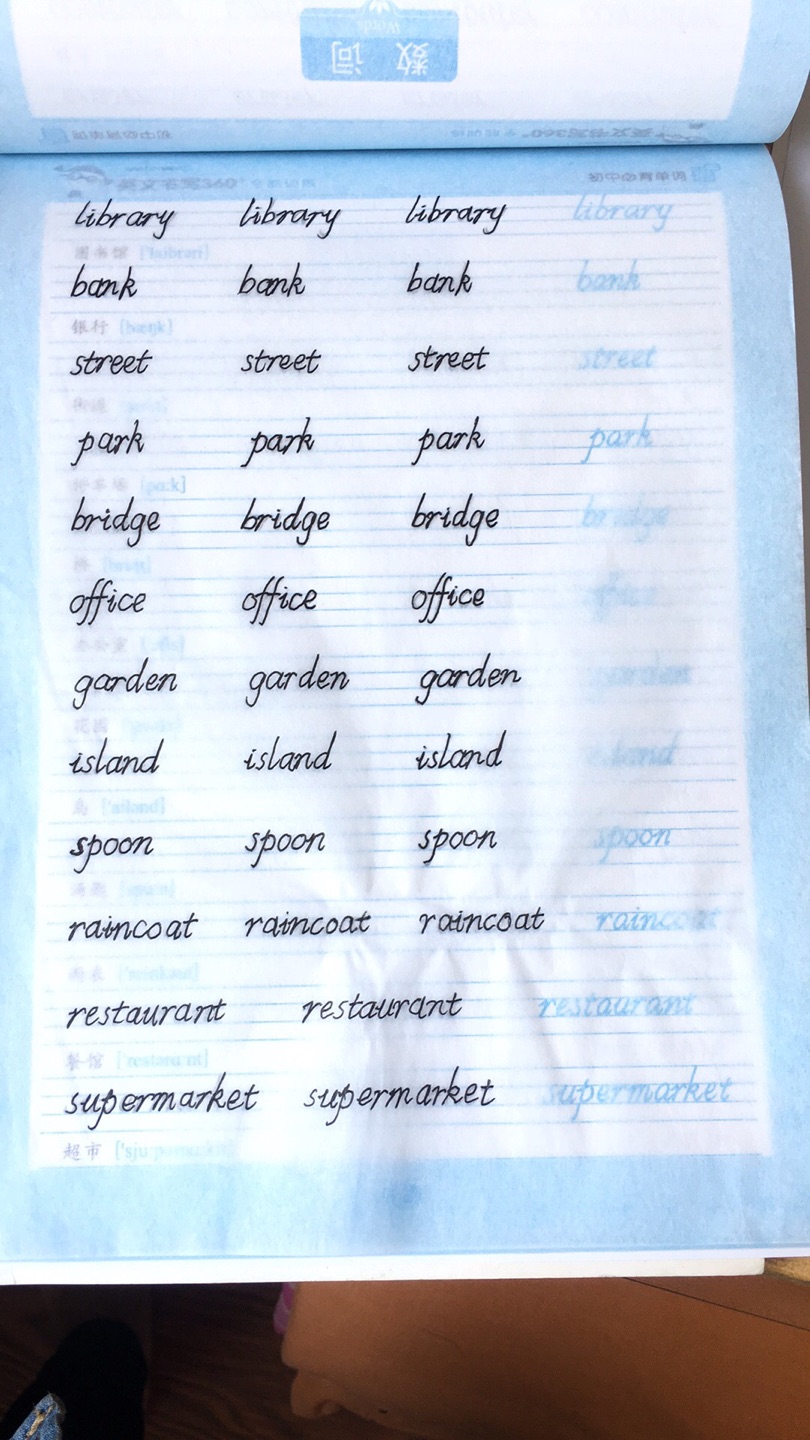 Words
数 词
英文书写360°
初中必背单词
library library library library
图书馆 ['laibrəri]
bank bank bank bank
银行 [bæŋk]
street street street street
街道
park park park park
停车场 [pɑ:k]
bridge bridge bridge bridge
桥
office office office office
办公室
garden garden garden garden
花园
island island island
岛 ['ailənd]
spoon spoon spoon spoon
汤匙 [spu:n]
raincoat raincoat raincoat raincoat
雨衣 ['reinkəut]
restaurant restaurant restaurant
餐馆
supermarket supermarket supermarket
超市